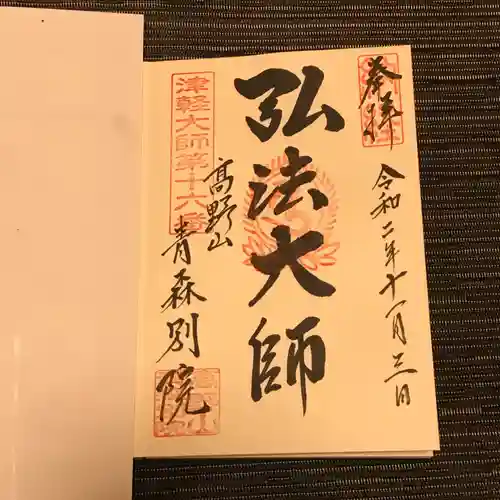 奉拝
令和二年十一月三日
弘法大師
津軽大師第十六番
高野山
青森別院